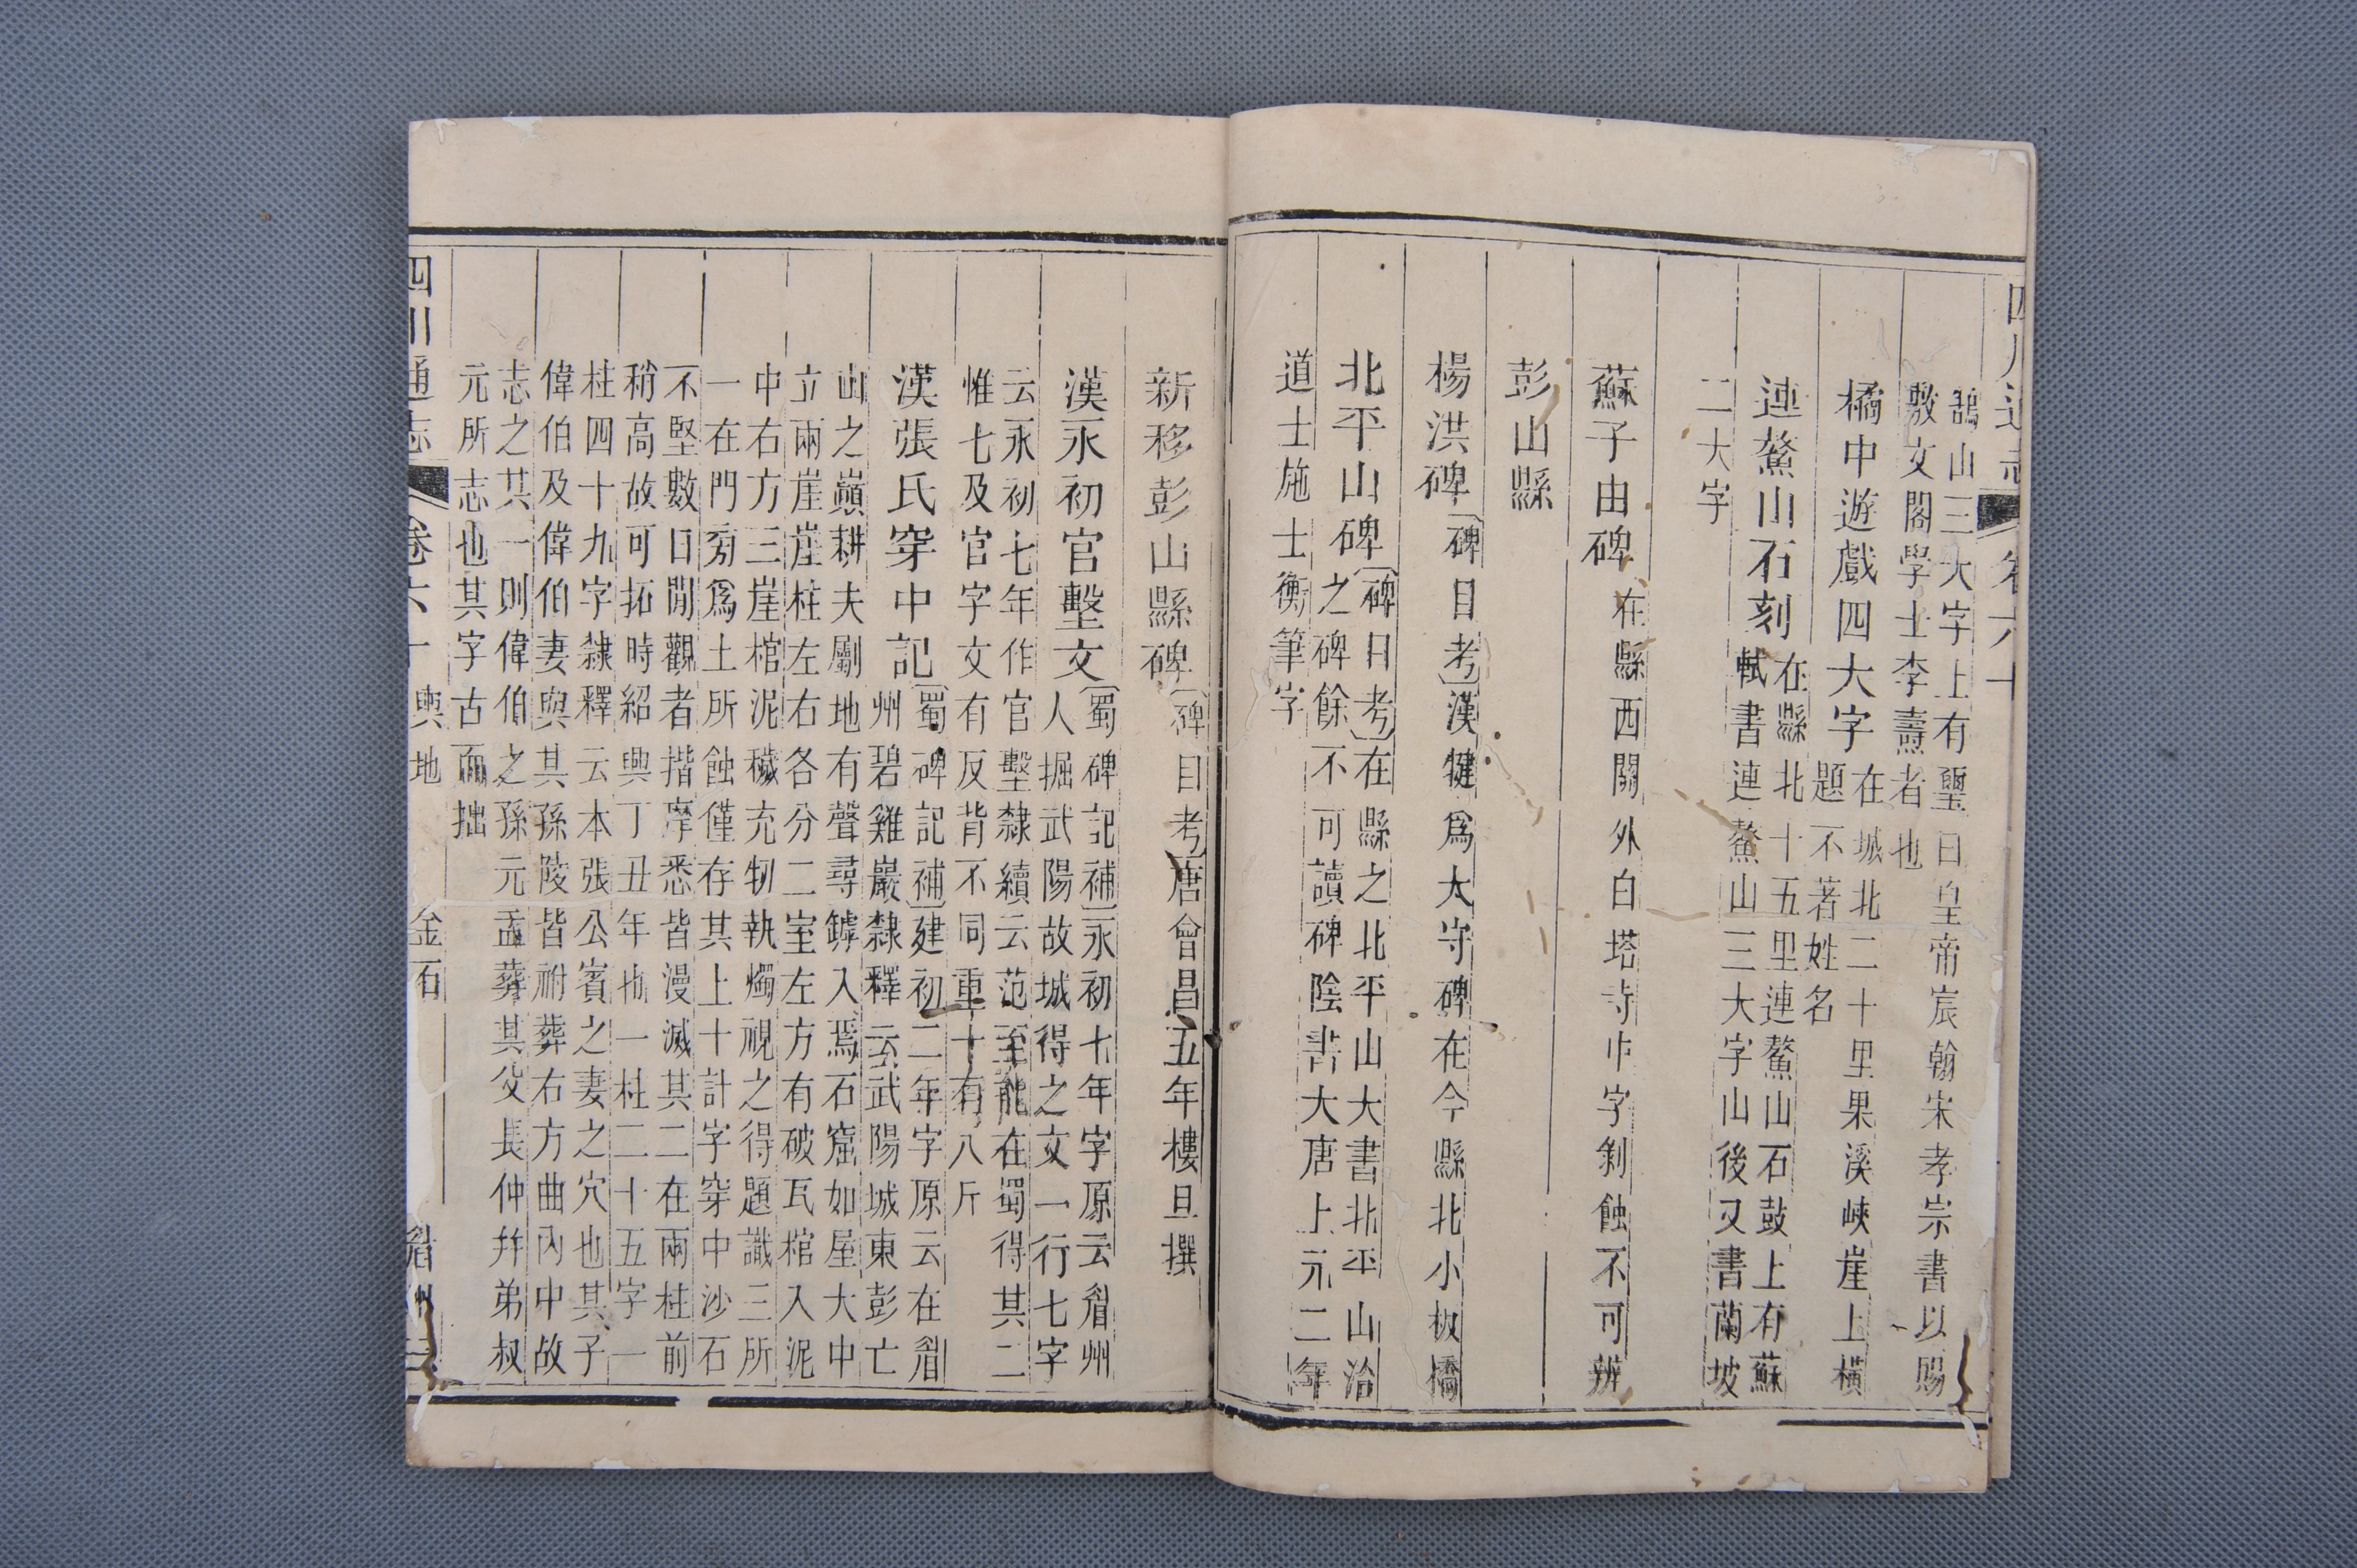 鵠山三大字上有璽曰皇帝宸翰宋孝宗書以賜
敷文閣學士李壽者也
橘中遊戲四大字在城北二十里果溪峽崖上橫
題不著姓名
連鰲山石刻在縣北十五里連鰲山石鼓上有蘇
軾書連鰲山三大字山後又書蘭坡
二大字
蘇子由碑在縣西關外白塔寺中字剝蝕不可辨
彭山縣
楊洪碑〔碑目考〕漢犍爲太守碑在今縣北小板橋
北平山碑〔碑目考〕在縣之北平山大書北平山治
之碑餘不可讀碑陰書大唐上元二年
道士施士衡筆字
新移彭山縣碑〔碑目考〕唐會昌五年樓旦撰
漢永初官墼文〔蜀碑記補〕永初七年字原云眉州
人掘武陽故城得之文一行七字
云永初七年作官墼隸續云范至能在蜀得其二
惟七及官字文有反背不同重十有八斤
漢張氏穿中記〔蜀碑記補〕建初二年字原云在眉
州碧雞巖隸釋云武陽城東彭亡
山之巓耕夫劚地有聲尋罅入焉石窟如屋大中
立兩崖崖柱左右各分二室左方有破瓦棺入泥
中右方三崖棺泥穢充牣執燭視之得題識三所
一在門旁爲土所蝕僅存其上十計字穿中沙石
不堅數日閒觀者揩摩悉皆漫滅其二在兩柱前
稍高故可拓時紹興丁丑年也一柱二十五字一
柱四十九字隸釋云本張公賓之妻之穴也其子
偉伯及偉伯妻與其孫陵皆祔葬右方曲內中故
志之其一則偉伯之孫元盂葬其父長仲幷弟叔
元所志也其字古而拙
四川通志 卷六十 輿地 金石 眉州
四川通志 卷六十